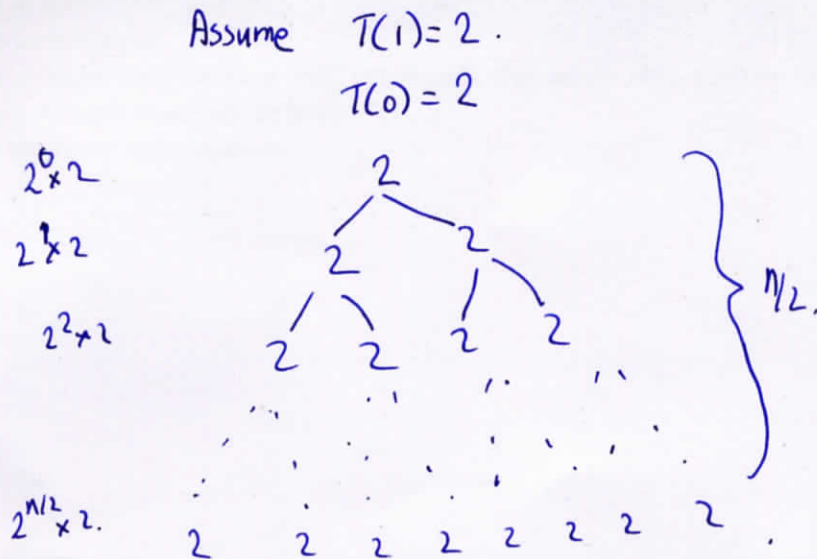 Assume T(1) = 2 .
T(0) = 2
2^0 × 2 2
2^1 × 2 2 2
n/2.
2^2 × 2 2 2 2 2
2^{n/2} × 2. 2 2 2 2 2 2 2 2 .